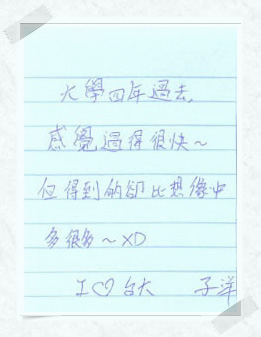 大學四年過去，
感覺過得很快～
但得到的卻比想像中
多很多～XD
I♡台大 子洋